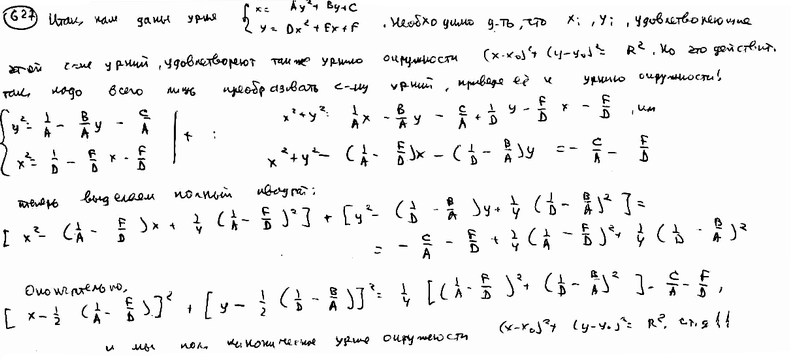 627 Итак, нам даны ур-ия { x = Ay² + By + C
y = Dx² + Ex + F . Необходимо д-ть, что xᵢ, yᵢ, удовлетворяющие
этой с-ме ур-ний, удовлетворяют также ур-нию окружности (x-x₀)² + (y-y₀)² = R². Но это действит.
так, надо всего лишь преобразовать с-му ур-ний, приведя её к ур-нию окружности!
{ y² = 1/A - B/A y - C/A
x² = 1/D - F/D x - F/D | + :
x² + y² = 1/A x - B/A y - C/A + 1/D y - F/D x - F/D , или
x² + y² - (1/A - F/D)x - (1/D - B/A)y = - C/A - F/D
теперь выделяем полный квадрат:
[x² - (1/A - F/D)x + 1/4 (1/A - F/D)²] + [y² - (1/D - B/A)y + 1/4 (1/D - B/A)²] =
= - C/A - F/D + 1/4 (1/A - F/D)² + 1/4 (1/D - B/A)²
Окончательно,
[x - 1/2 (1/A - F/D)]² + [y - 1/2 (1/D - B/A)]² = 1/4 [(1/A - F/D)² + (1/D - B/A)²] - C/A - F/D ,
и мы пол. каноническое ур-ие окружности (x-x₀)² + (y-y₀)² = R²